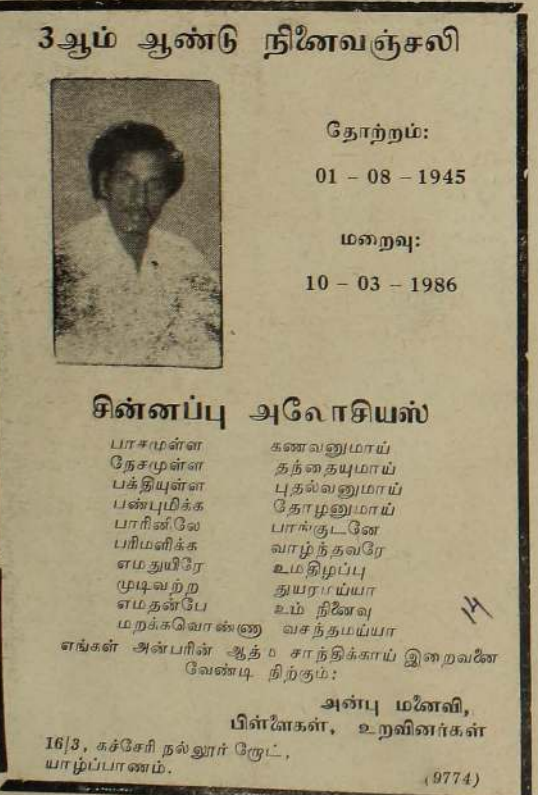 3ஆம் ஆண்டு நினைவஞ்சலி
தோற்றம்:
01 - 08 - 1945
மறைவு:
10 - 03 - 1986
சின்னப்பு அலோசியஸ்
பாசமுள்ள கணவனுமாய்
நேசமுள்ள தந்தையுமாய்
பக்தியுள்ள புதல்வனுமாய்
பண்புமிக்க தோழனுமாய்
பாரினிலே பாங்குடனே
பரிமளிக்க வாழ்ந்தவரே
எமதுயிரே உமதிழப்பு
முடிவற்ற துயரமய்யா
எமதன்பே உம் நினைவு
மறக்கவொண்ணா வசந்தமய்யா
எங்கள் அன்பரின் ஆத்ம சாந்திக்காய் இறைவனை
வேண்டி நிற்கும்:
அன்பு மனைவி,
பிள்ளைகள், உறவினர்கள்
16/3, கச்சேரி நல்லூர் றோட்,
யாழ்ப்பாணம்.
(9774)
14